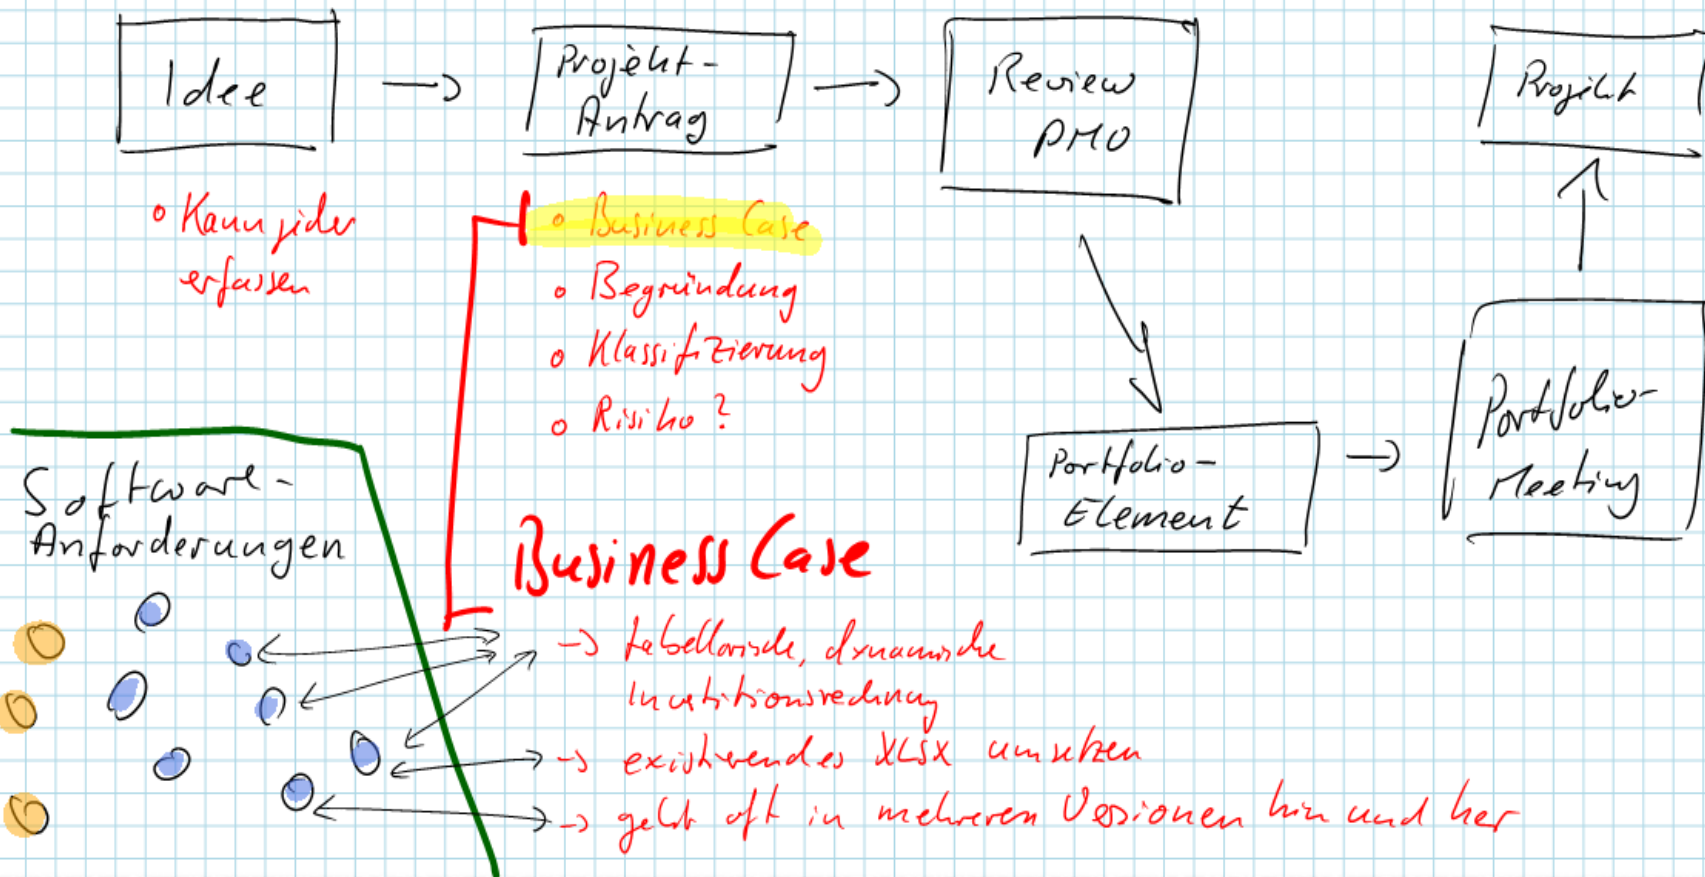 Idee
Projekt-
Antrag
Review
PMO
Projekt
• Kann jeder
erfassen
• Business Case
• Begründung
• Klassifizierung
• Risiko?
Portfolio-
Element
Portfolio-
Meeting
Software-
Anforderungen
Business Case
-> tabellarische, dynamische
Investitionsrechnung
-> existierendes XLSX umsetzen
-> geht oft in mehreren Versionen hin und her